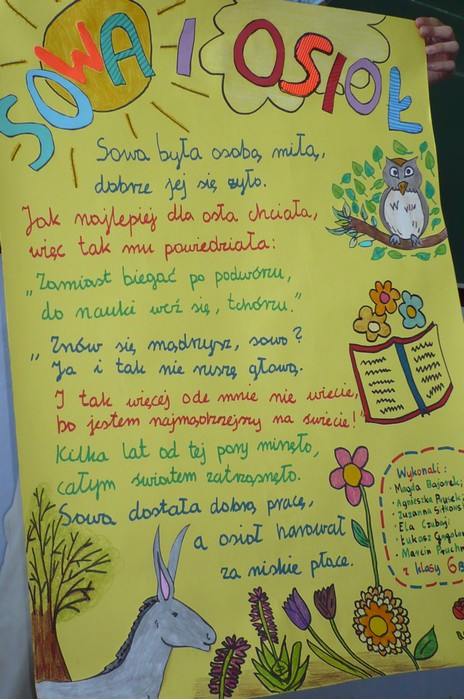 SOWA I OSIOŁ
Sowa była osobą miłą,
dobrze jej się żyło.
Jak najlepiej dla osła chciała,
więc tak mu powiedziała:
„Zamiast biegać po podwórzu,
do nauki weź się, tchórzu."
„Znów się mądrzysz, sowo?
Ja i tak nie ruszę głową.
I tak więcej ode mnie nie wiecie,
bo jestem najmądrzejszy na świecie!"
Kilka lat od tej pory minęło,
całym światem zatrzęsnęło.
Sowa dostała dobrą pracę,
a osioł harował
za niskie płace.
Wykonali:
· Magda Bajorek
· Agnieszka
· Zuzanna
· Ela
· Łukasz
· Marcin
z klasy 6